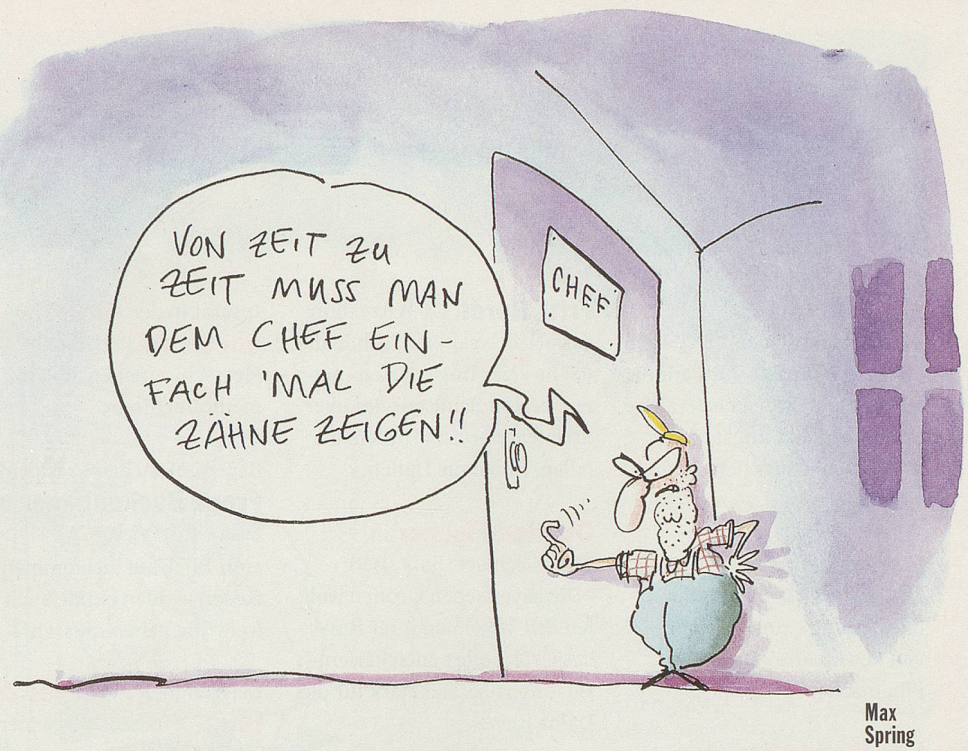 VON ZEIT ZU
ZEIT MUSS MAN
DEM CHEF EIN-
FACH 'MAL DIE
ZÄHNE ZEIGEN!!
CHEF
Max
Spring